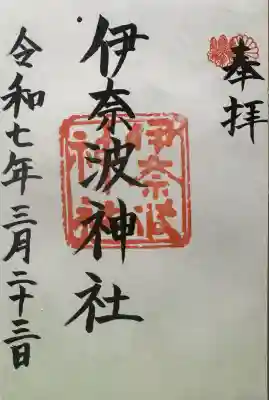 奉拝
伊奈波神社
伊奈波神社
令和七年三月二十三日